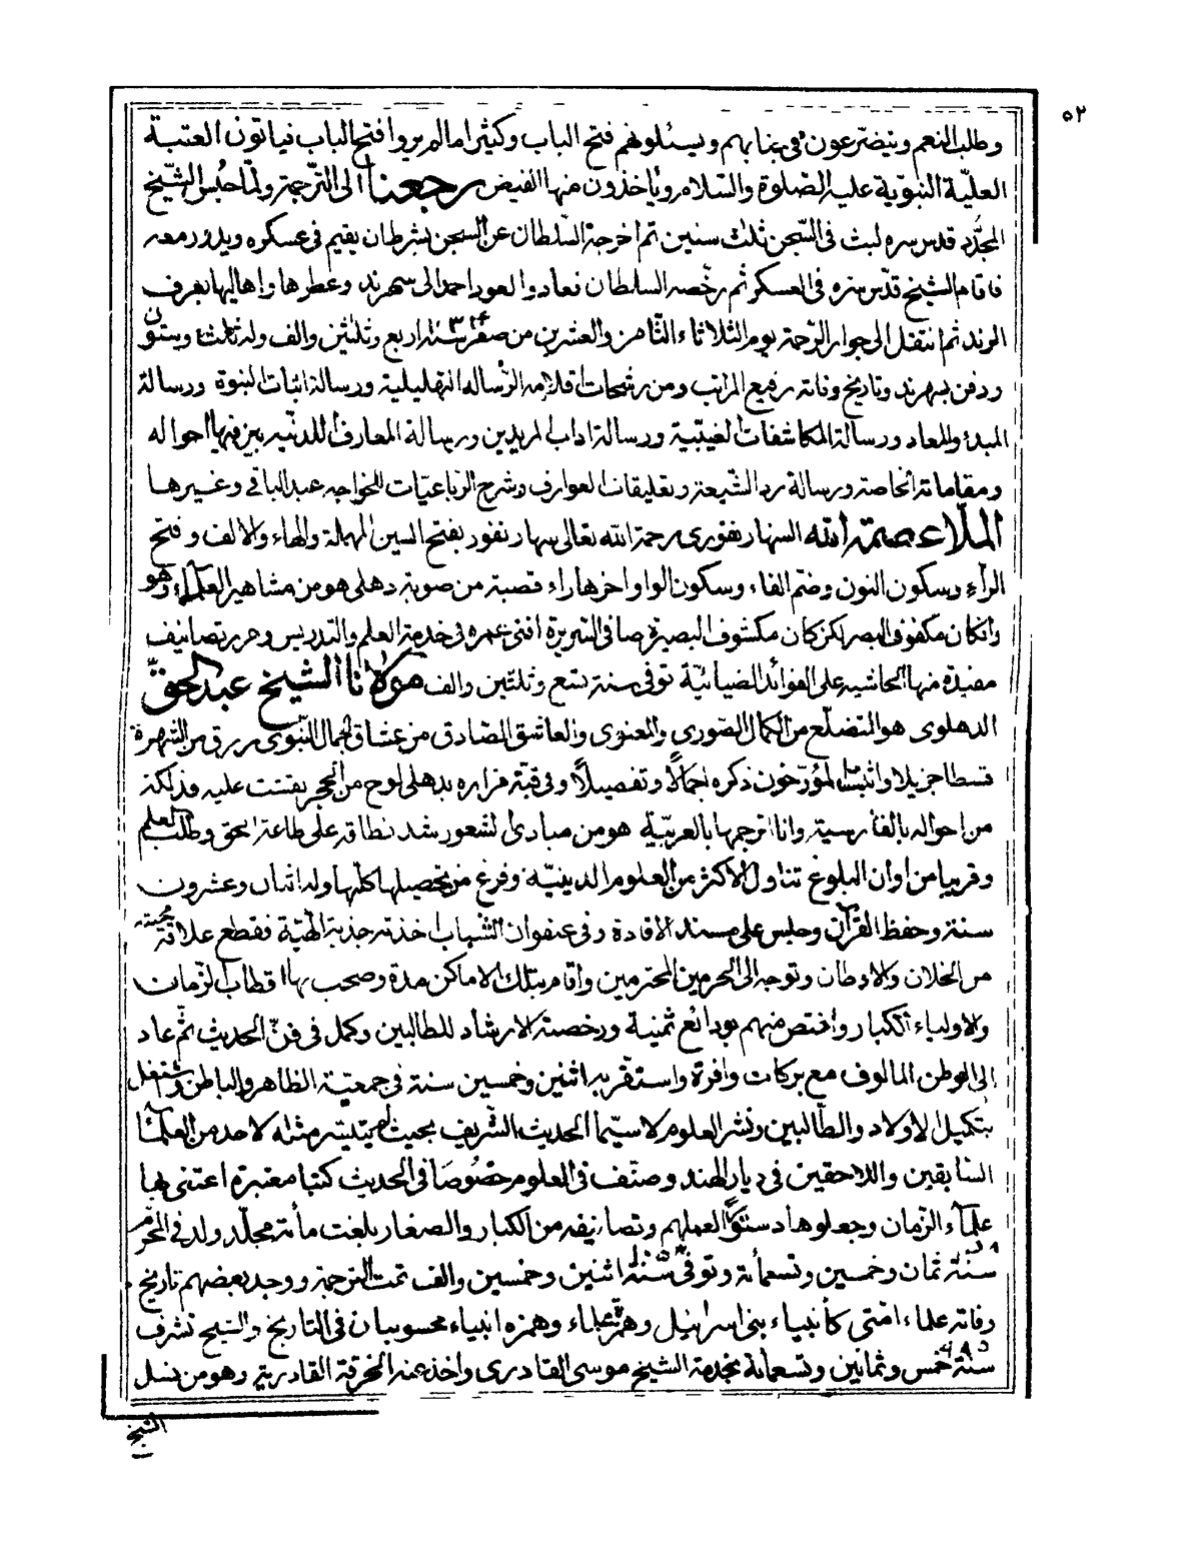 ٥٢
وطلب النعم ويتضرعون في بابهم ويسئلونهم فتح الباب وكثيرا ما لم يروا فتح الباب فياتون العتبة
العليّة النبوّية عليه الصّلوة والسّلام وياخذون منها الفيض رجعنا الى التّرجمة ولمّا حبُس الشّيخ
المجدّد قدس سره لبث فى السّجن ثلث سنين ثم اخرجه السّلطان عن السجن بشرط ان يقيم فى عسكره ويدور معه
فاقام الشيخ قدّس سره فى العسكر ثم رخّصه السلطان فعاد والعود احمد الى سهرند وعطرها واهاليها بعرف
الرند ثم انتقل الى جوار الرّحمة يوم الثلاثاء الثّامن والعشرين من صفر سنة اربع وثلثين والف وله ثلث وستّون
ودفن بسهرند وتاريخ وفاته رفيع المراتب ومن رشحات اقلامه الرّساله التهليلية ورسالة اثبات النبوة ورسالة
المبدء والمعاد ورسالة المكاشفات الغيبية ورسالة اداب المريدين ورسالة المعارف اللدنّيه بيّن فيها احواله
ومقاماته الخاصة ورسالة رد الشّيعة وتعليقات العوارف وشرح الرّباعيّات للخواجه عبد الباقى وغيرها
الملّا عصمة الله السهارنفورى رحمة الله تعالى سهارنفور بفتح السين المهملة والهاء والالف وفتح
الرآء وسكون النون وضم الفاء وسكون الواو اخرها راء قصبة من صوبة دهلى هو من مشاهير العلماء وهو
وان كان مكفوف البصر لكن كان مكشوف البصيرة صافى السريرة افنى عمره فى خدمة العلم والتدريس وحرر تصانيف
مفيدة منها الحاشيه على الفوائد الضيائيّة توفى سنة تسع وثلثين والف مولانا الشيخ عبد الحقّ
الدهلوى هو المتضلّع من الكمال الصّورى والمعنوى والعاشق الصّادق من عشاق الجمال النّبوى رزق من الشهرة
قسطا جزيلا واثبت المؤرّخون ذكره اجمالًا وتفصيلًا وفى قبّة مزاره بدهلى لوح من الحجر نقشت عليه فذلكة
من احواله بالفارسية وانا اترجمها بالعربيّة هو من مبادى الشعور شد نطاقه على طاعة الحق وطلب العلم
وقريبا من اوان البلوغ تناول الاكثر من العلوم الدينيّه وفرغ من تحصيلها كلّها وله اثنان وعشرون
سنة وحفظ القرآن وجلس على مسند الافادة وفى عنفوان الشّباب اخذته جذبة الٰهيّة فقطع علاقة محبته
من الخلان والاوطان وتوجه الى الحرمين المحترمين واقام بتلك الاماكن مدة وصحب بها اقطاب الزّمان
والاولياء الكبار واختص منهم بودائع ثمينة ورخصة الارشاد للطالبين وكمل فى فنّ الحديث ثمّ عاد
الى الوطن المالوف مع بركات وافرة واستقر به اثنين وخمسين سنة فى جمعيّة الظاهر والباطن واشتغل
بتكميل الاولاد والطّالبين ونشر العلوم لا سيّما الحديث الشّريف بحيث لم يتيسر مثله لاحد من العلمآء
السّابقين واللاحقين فى ديار الهند وصنّف فى العلوم خصُوصًا فى الحديث كتبا معتبرة اعتنى بها
علمآء الزّمان وجعلوها دستورًا لعملهم وتصانيفه من الكبار والصغار بلغت مأته مجلّد ولد فى المحرّم
سنة ثمان وخمسين وتسعمأته وتوفى سنة اثنين وخمسين والف تمت الترجمة ووجد بعضهم تاريخ
وفاته علماء امّتى كأنبياء بنى اسرائيل وهمزة علماء وهمزه انبياء محسوبتان فى التاريخ والشيخ تشرف
سنة خمس وثمانين وتسعمأئة بخدمة الشيخ موسى القادرى واخذ عنه الخرقة القادرية وهو من نسل
الشيخ